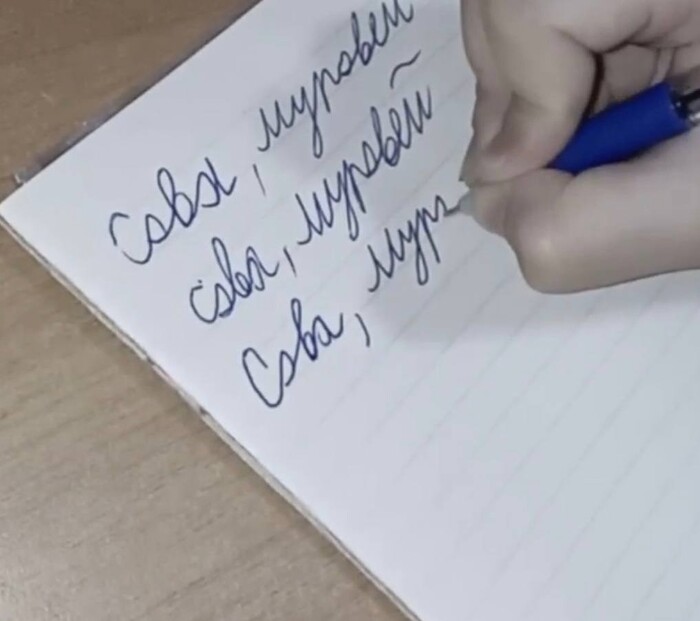 Сова, муровей
сова, муровей
Сова, мур